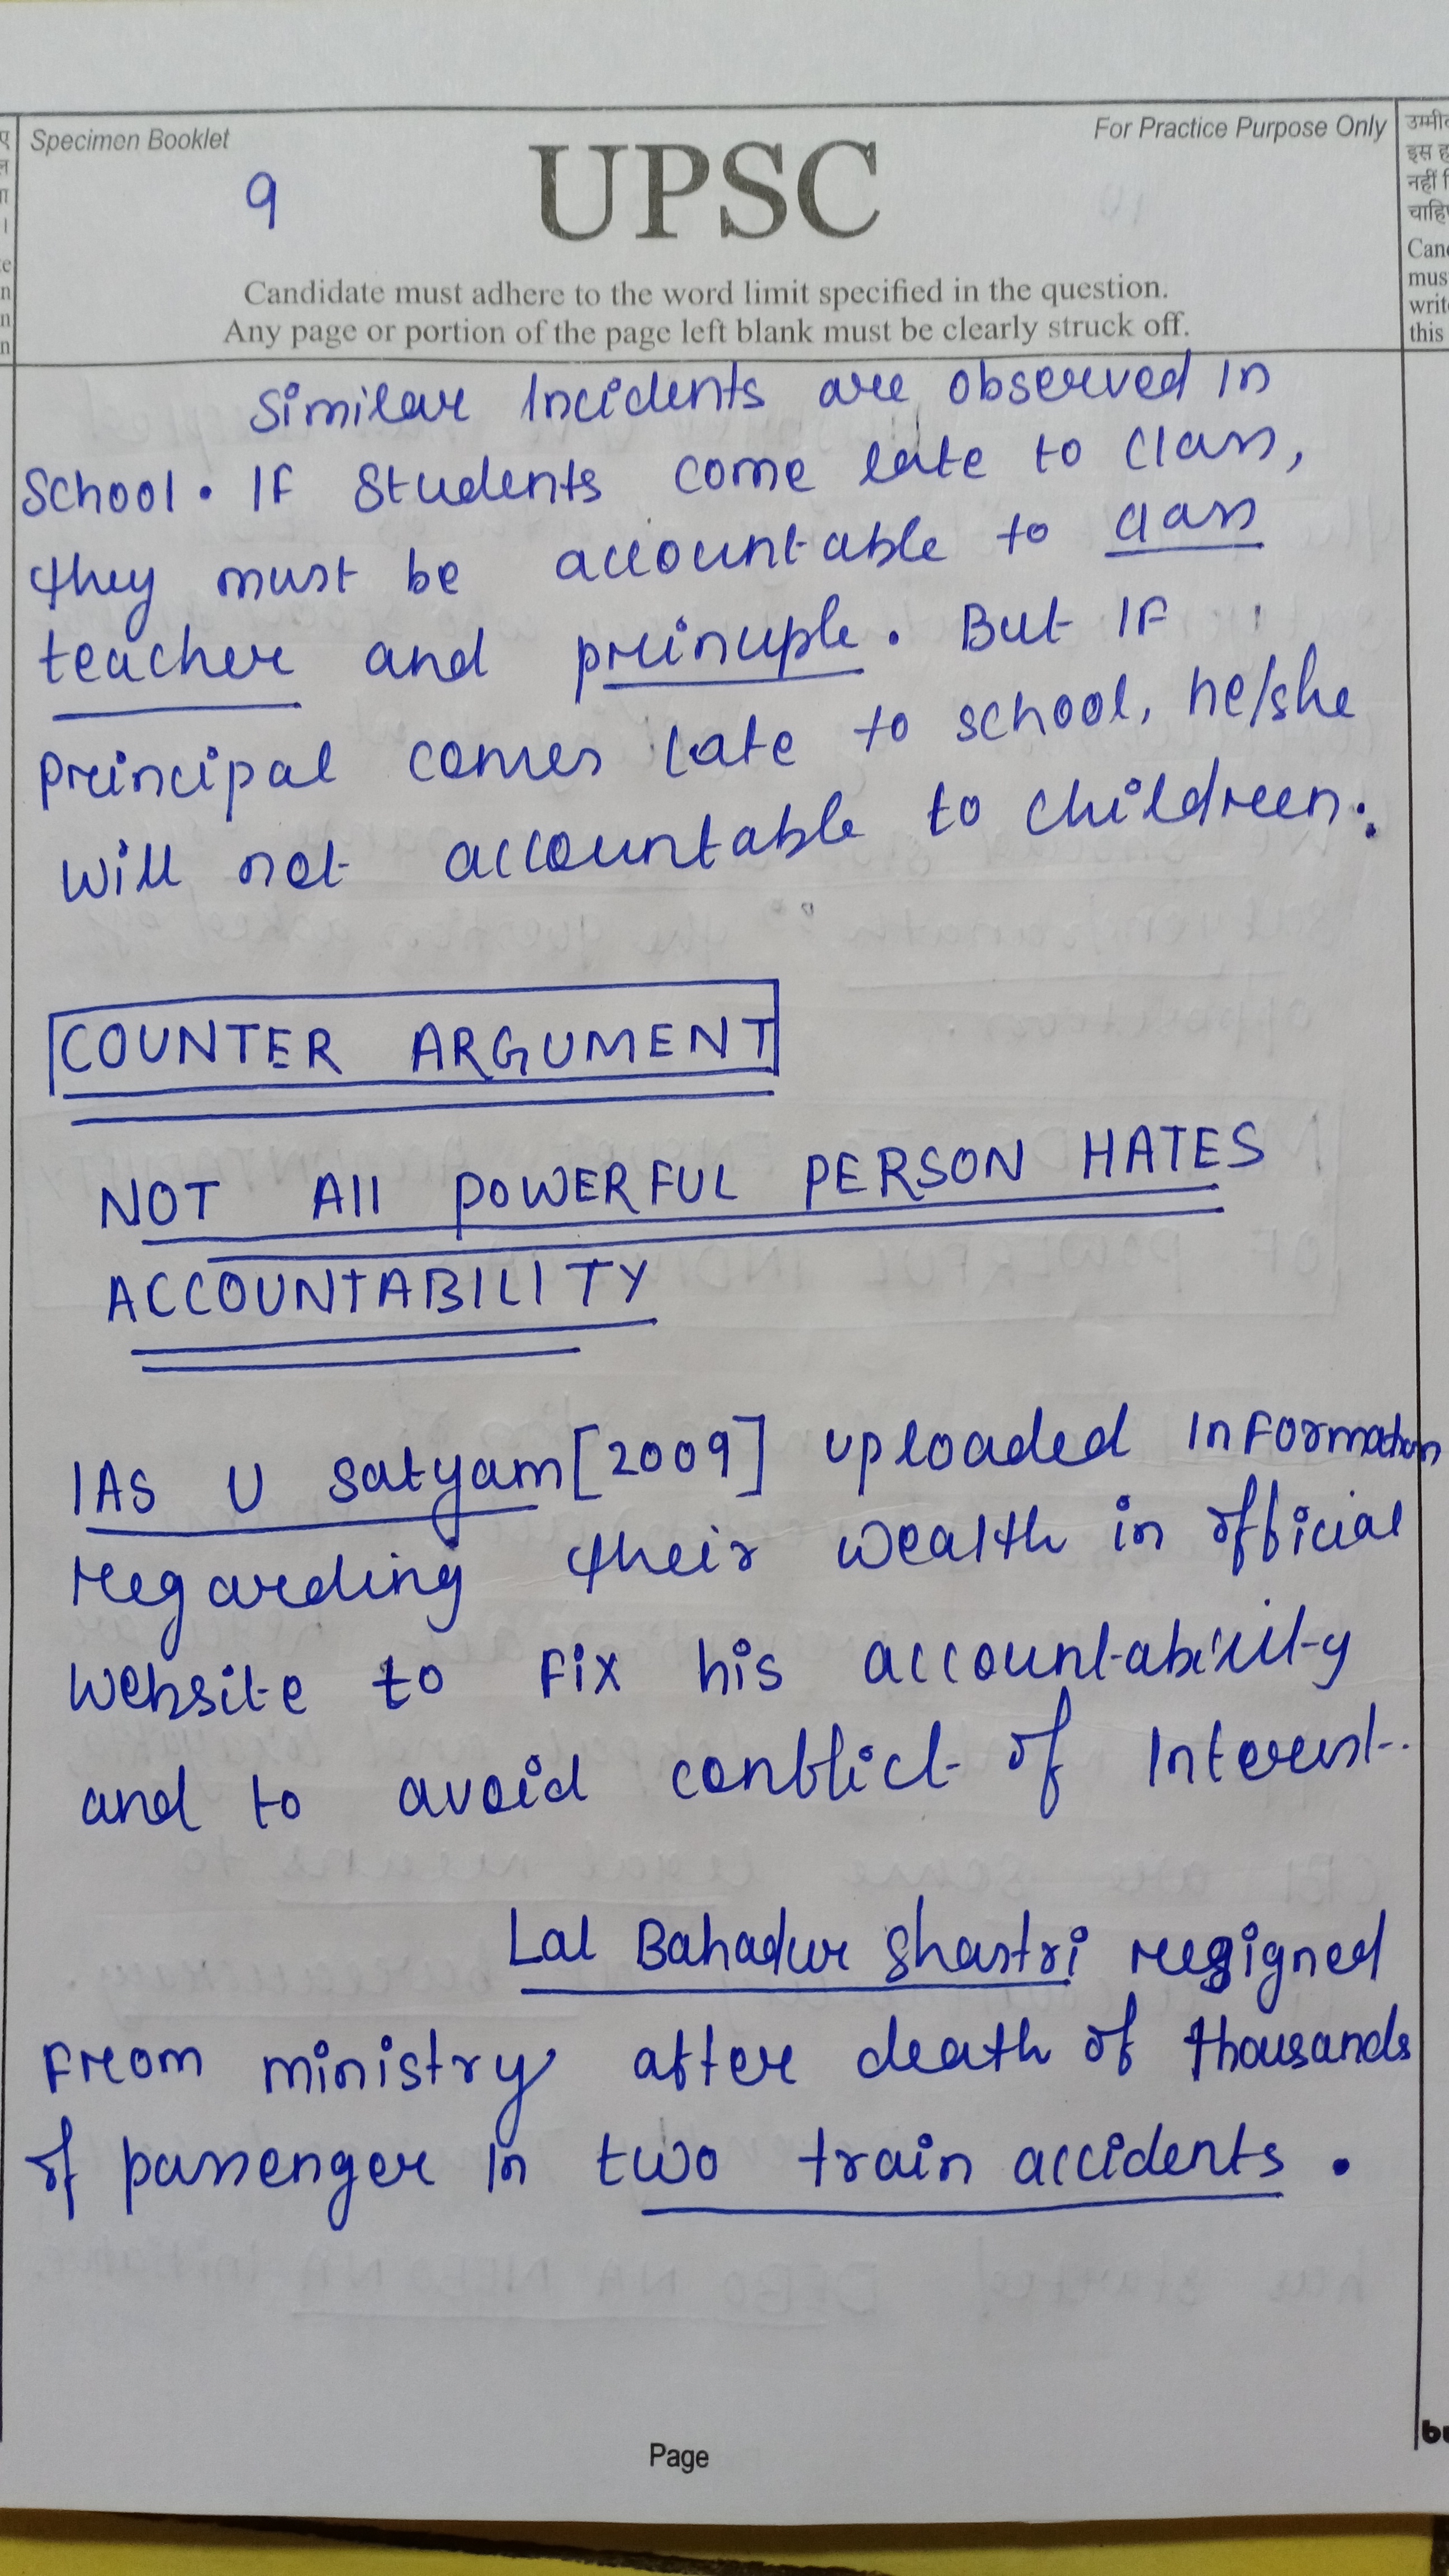 Specimen Booklet
For Practice Purpose Only
9
UPSC
Candidate must adhere to the word limit specified in the question.
Any page or portion of the page left blank must be clearly struck off.
उम्मी
इस ह
नहीं
चाहि
Can
mus
writ
this
Similar Incidents are observed In
School. IF Students come late to class,
they must be accountable to class
teacher and prinuple. But IF
Principal comes late to school, he/she
will not accountable to children.
COUNTER ARGUMENT
NOT All POWERFUL PERSON HATES
ACCOUNTABILITY
IAS U Satyam [2009] uploaded Information
regarding their wealth in official
website to Fix his accountability
and to avoid conflict of Interest.
Lal Bahadur Shastri resigned
From ministry after death of thousands
of passenger In two train accidents.
Page